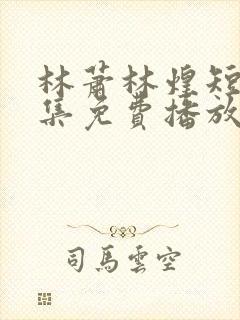 林蕭林煌短
集免費播放
司馬雲空